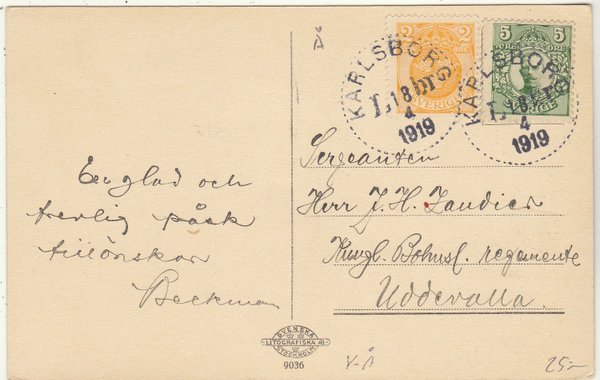 En glad och
trevlig påsk
tillönskar
Beckman
2
ÖRE
SVERIGE
5
ÖRE
SVERIGE
KARLSBORG
LBR
18
4
1919
KARLSBORG
LBR
18
4
1919
Sergeanten
Herr J. H. Zandier
Kungl. Bohusl. regemente
Uddevalla.
SVENSKA
LITOGRAFISKA AB
STOCKHOLM
9036
V-Å
25:-